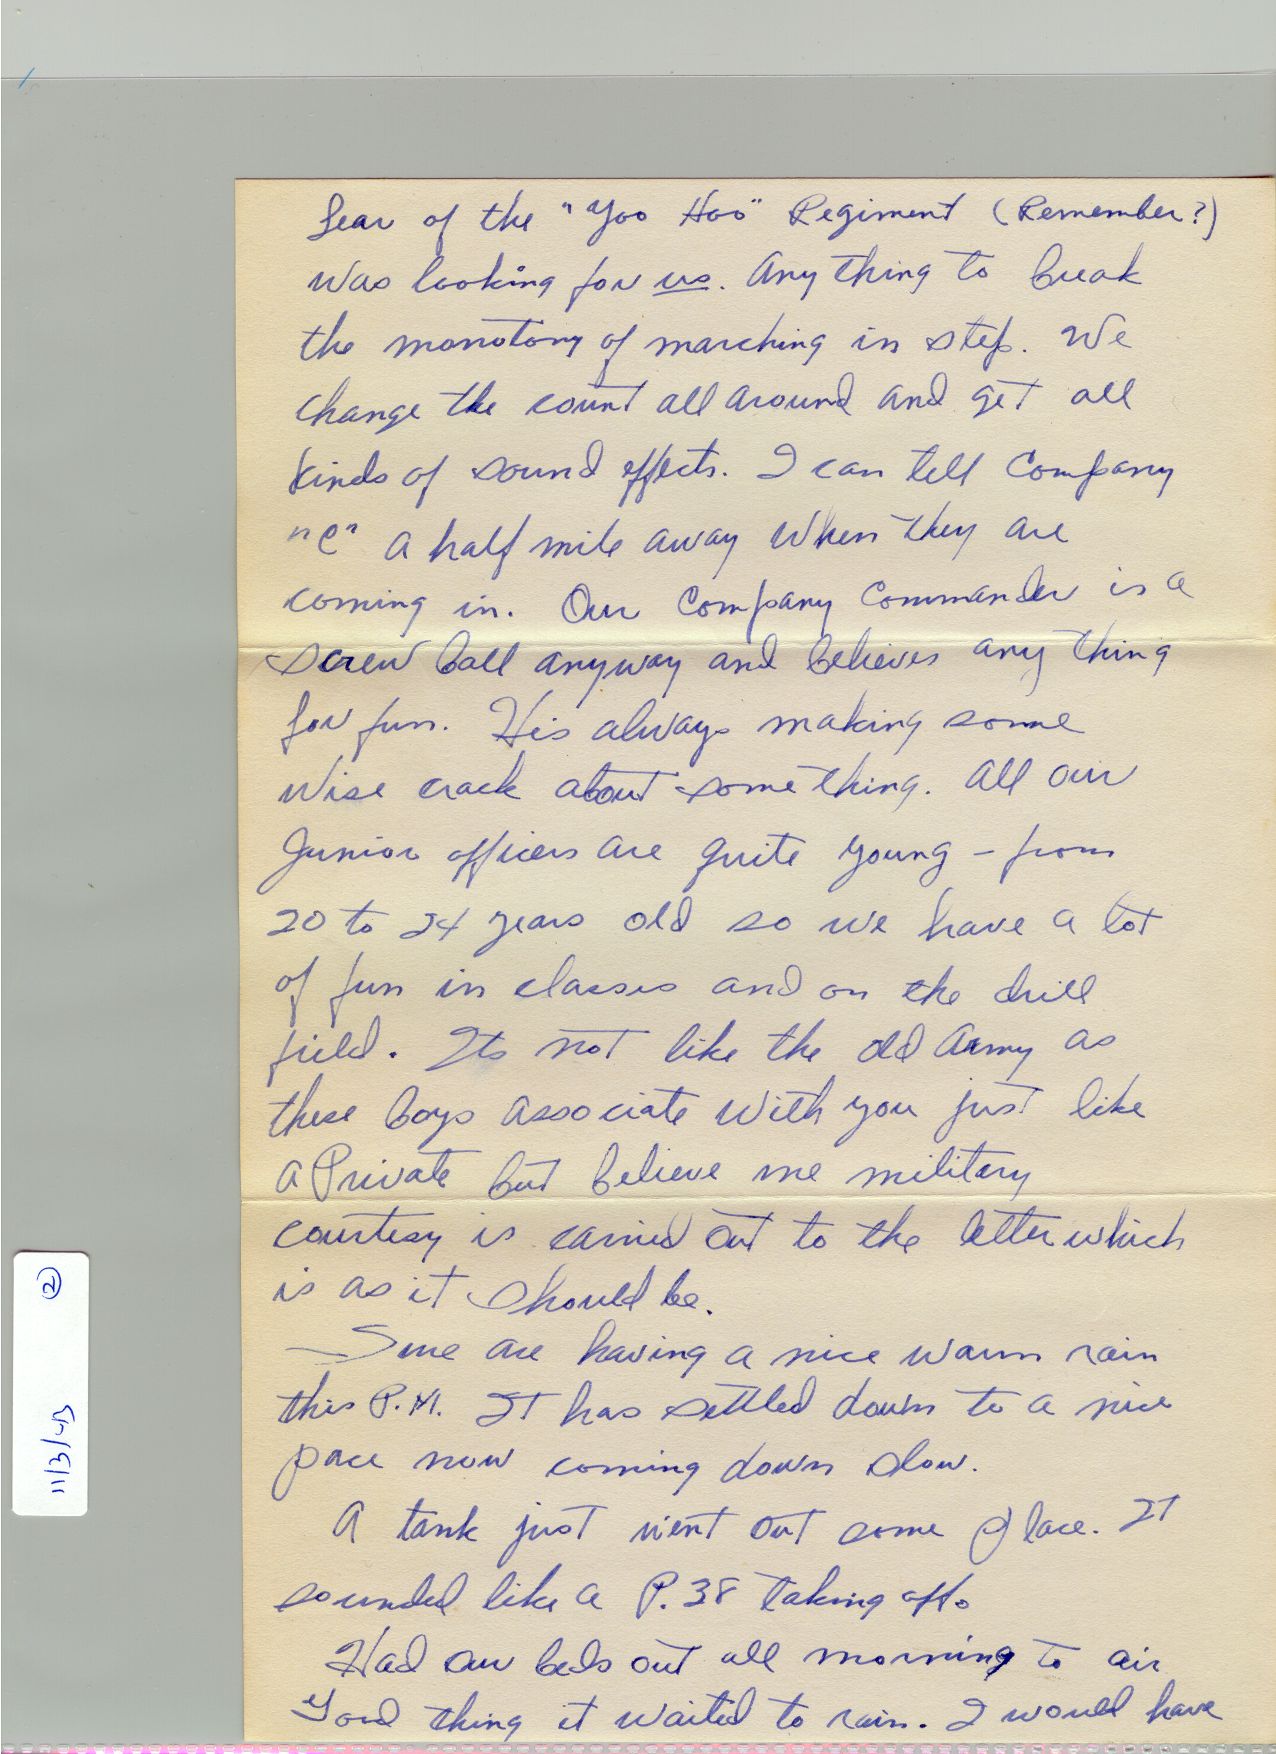 Lear of the "Yoo Hoo" Regiment (Remember?)
was looking for us. Anything to break
the monotony of marching in step. We
change the count all around and get all
kinds of sound effects. I can tell Company
"C" a half mile away when they are
coming in. Our Company Commander is a
screw ball anyway and believes any thing
for fun. His always making some
wise crack about something. All our
Junior officers are quite young - from
20 to 24 years old so we have a lot
of fun in classes and on the drill
field. Its not like the old Army as
these boys associate with you just like
a Private but believe me military
courtesy is carried out to the letter which
is as it should be.
Sure are having a nice warm rain
this P.M. It has settled down to a nice
pace now coming down slow.
A tank just went out some place. It
sounded like a P.38 taking off.
Had our beds out all morning to air
Good thing it waited to rain. I would have
11/3/43 ②